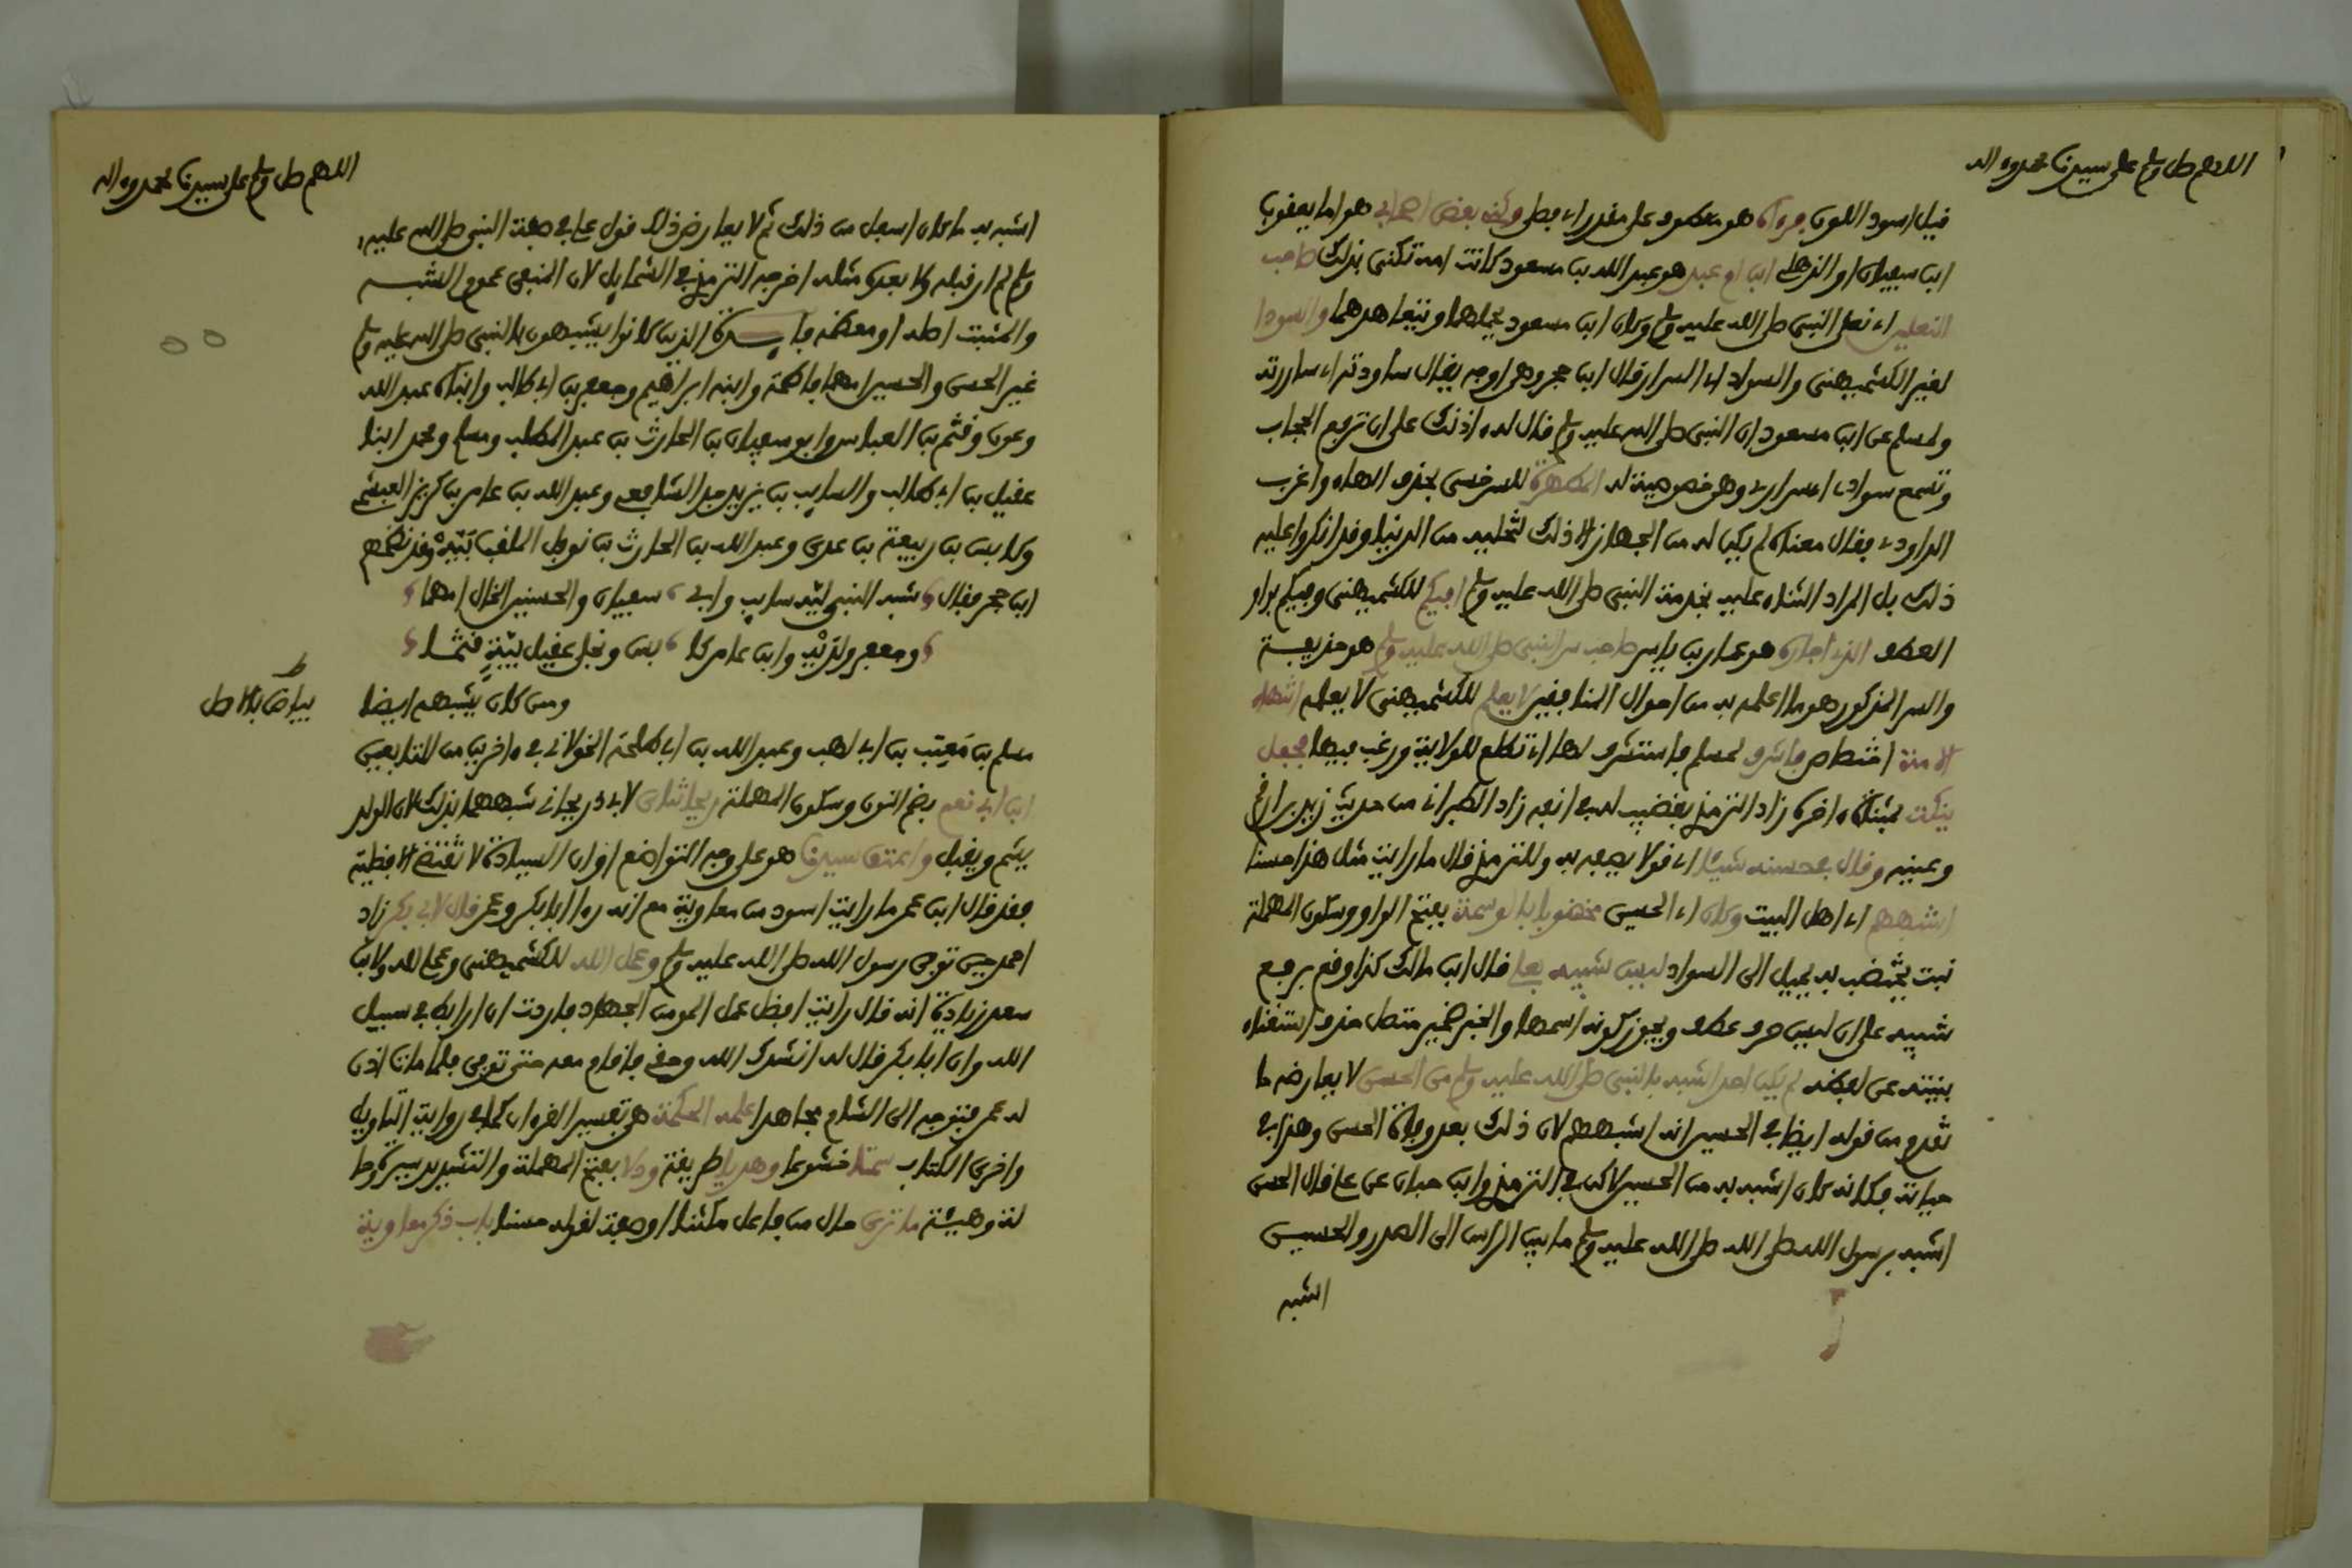 اللهم صل وسلم على سيدنا محمد وءاله
قيل اسود اللون فرءا هو معطوف على مقدر اي فصلى وكفه بعض اصحابي هو اما يعقوب
ابن سفيان او الذهلي ابن ام عبد هو عبد الله بن مسعود كانت امه تكنى بذلك صاحب
النعلين اي نعلي النبي صلى الله عليه وسلم وكان ابن مسعود يحملهما ويتعاهدهما والسودا
لغير الكشميهني والسواد اي السرار قال ابن حجر وهي اوجه يقال ساودته اي ساررته
ولمسلم عن ابن مسعود ان النبي صلى الله عليه وسلم قال له اذنك على ان ترفع الحجاب
وتسمع سوادي اسراري وهي خصوصية له المطهرة للسرخسي بحذف الهاء واغرب
الداودي فقال معناه لم يكن له من الجهاز الا ذلك لتخليه من الدنيا وقد انكروا عليه
ذلك بل المراد الثناء عليه بخدمة النبي صلى الله عليه وسلم افيكم للكشميهني وفيكم بواو
العطف الذي اجاره هو عمار بن ياسر صاحب سر النبي صلى الله عليه وسلم هو حذيفة
والسر المذكور هو ما اعلمه به من احوال المنافقين لا يعلم للكشميهني لا يعلمه
فاستشرف لمسلم فاستشرف لها اي تطلع للولاية ورغب فيها فجعل
ينكت بمثناه اخره زاد الترمذي بقضيب له في انفه زاد الطبراني من حديث زيد بن ارقم
وعينه وقال في حسنه شيئا اي قولا يصفه به وللترمذي قال ما رايت مثل هذا حسنا
اشبههم اي اهل البيت وكان اي الحسين مخضوبا بالوسمة بفتح الواو وسكون المهملة
نبت يختضب به يميل الى السواد ليس شبيه بعلي قال ابن مالك كذا وقع برفع
شبيه على ان ليس حرف عطف ويجوز كونه اسمها والخبر ضمير متصل حذف استغناء
بنيته عن لفظه لم يكن احد اشبه بالنبي صلى الله عليه وسلم من الحسن لا يعارضه ما
تقدم من قوله ايضا في الحسين انه اشبههم لان ذلك بعد وفاة الحسن وهذا في
حياته فكانه كان اشبه به من الحسين لاكن في الترمذي وابن حبان عن علي قال الحسن
اشبه برسول الله صلى الله صلى الله عليه وسلم ما بين الراس الى الصدر والحسين
اشبه
اللهم صل وسلم على سيدنا محمد وءاله
اشبه به ما كان اسفل من ذلك ثم لا يعارض ذلك قول علي في صفة النبي صلى الله عليه
وسلم لم ار قبله ولا بعده مثله اخرجه الترمذي في الشمايل لان المنفي عموم الشبه
والمثبت اصله او معظمه فايدة الذين كانوا يشبهون بالنبي صلى الله عليه وسلم
غير الحسن والحسين امهما فاطمة وابنه ابراهيم وجعفر بن ابي طالب وابناه عبد الله
وعون وقثم بن العباس وابو سفيان بن الحارث بن عبد المطلب ومسلم ومحمد ابنا
عقيل بن ابي طالب والسايب بن يزيد جد الشافعي وعبد الله بن عامر بن كريز العبشمي
وكابس بن ربيعة بن عدي وعبد الله بن الحارث بن نوفل الملقب ببه وقد نظمهم
ابن حجر فقال شبه النبي ليه سايب وابي سفيان والحسنين الخال امهما
وجعفر ولديه وابن عامر كا بس ونجلي عقيل ببة قثما
ومن كان يشبهه ايضا
بياض بالاصل
مسلم بن معتب بن ابي لهب وعبد الله بن ابي طلحة الخولاني في ءاخرين من التابعين
ابن ابي نعم بضم النون وسكون المهملة ريحانتاي لابي ذر ريحاني شبههما بذلك لان الولد
يشم ويقبل واعتق سيدنا هو على وجه التواضع او ان السيادة لا تقتضي الافضلية
فقد قال ابن عمر ما رايت اسود من معاوية مع انه رءا ابا بكر وعمر قال لابي بكر زاد
احمد حين توفي رسول الله صلى الله عليه وسلم وعمل الله للكشميهني وعملي لله ولابن
سعد زيادة انه قال رايت افضل عمل المومن الجهاد فاردت ان ارابط في سبيل
الله وان ابا بكر قال له انشدك الله وحقي فاقام معه حتى توفي فلما مات اذن
له عمر فتوجه الى الشام مجاهدا علمه الحكمة هي تفسير القرءان كما في رواية التاويل
واخرى الكتاب سمتا خشوعا وهديا طريقة ودلا بفتح المهملة والتشديد سيرة وحا
لة وهيئة ما ترى حال من فاعل مكثنا او صفة لقوله حسنا باب ذكر معاوية